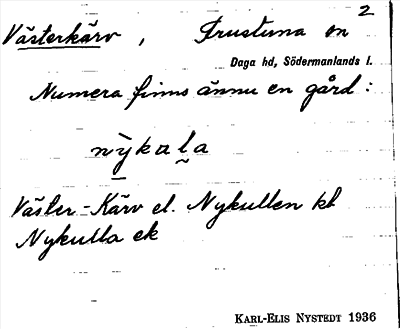 2
Västerkärv, Frustuna sn
Daga hd, Södermanlands l.
Numera finns ännu en gård:
nỳkala
Väster-Kärv el. Nykullen kb
Nykulla ek
KARL-ELIS NYSTEDT 1936